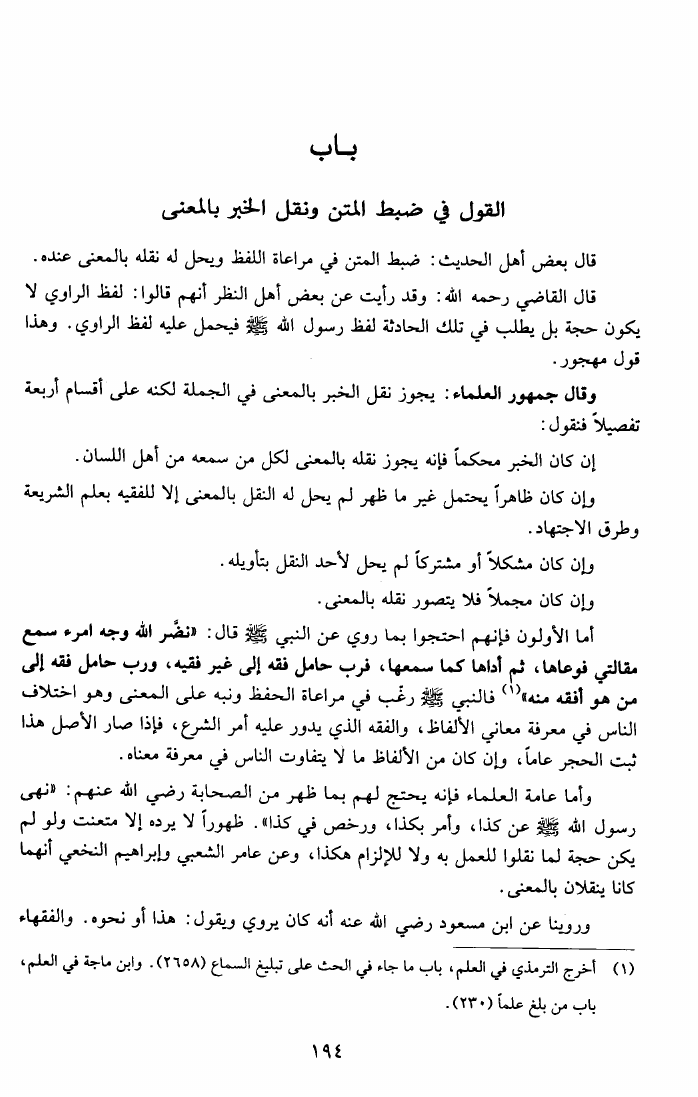 بـاب
القول في ضبط المتن ونقل الخبر بالمعنى
قال بعض أهل الحديث: ضبط المتن في مراعاة اللفظ ويحل له نقله بالمعنى عنده.
قال القاضي رحمه الله: وقد رأيت عن بعض أهل النظر أنهم قالوا: لفظ الراوي لا
يكون حجة بل يطلب في تلك الحادثة لفظ رسول الله ﷺ فيحمل عليه لفظ الراوي. وهذا
قول مهجور.
وقال جمهور العلماء: يجوز نقل الخبر بالمعنى في الجملة لكنه على أقسام أربعة
تفصيلاً فنقول:
إن كان الخبر محكماً فإنه يجوز نقله بالمعنى لكل من سمعه من أهل اللسان.
وإن كان ظاهراً يحتمل غير ما ظهر لم يحل له النقل بالمعنى إلا للفقيه بعلم الشريعة
وطرق الاجتهاد.
وإن كان مشكلاً أو مشتركاً لم يحل لأحد النقل بتأويله.
وإن كان مجملاً فلا يتصور نقله بالمعنى.
أما الأولون فإنهم احتجوا بما روي عن النبي ﷺ قال: «نضَّر الله وجه امرء سمع
مقالتي فوعاها، ثم أداها كما سمعها، فرب حامل فقه إلى غير فقيه، ورب حامل فقه إلى
من هو أفقه منه»(١) فالنبي ﷺ رغّب في مراعاة الحفظ ونبه على المعنى وهو اختلاف
الناس في معرفة معاني الألفاظ، والفقه الذي يدور عليه أمر الشرع، فإذا صار الأصل هذا
ثبت الحجر عاماً، وإن كان من الألفاظ ما لا يتفاوت الناس في معرفة معناه.
وأما عامة العلماء فإنه يحتج لهم بما ظهر من الصحابة رضي الله عنهم: «نهى
رسول الله ﷺ عن كذا، وأمر بكذا، ورخص في كذا». ظهوراً لا يرده إلا متعنت ولو لم
يكن حجة لما نقلوا للعمل به ولا للإلزام هكذا، وعن عامر الشعبي وإبراهيم النخعي أنهما
كانا ينقلان بالمعنى.
وروينا عن ابن مسعود رضي الله عنه أنه كان يروي ويقول: هذا أو نحوه. والفقهاء
(١) أخرج الترمذي في العلم، باب ما جاء في الحث على تبليغ السماع (٢٦٥٨). وابن ماجة في العلم،
باب من بلغ علماً (٢٣٠).
١٩٤